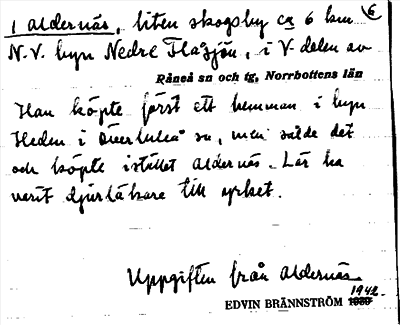 6
I Aldernäs, liten skogsby ca 6 km
N.V. byn Nedre Flåsjön, i V delen av
Råneå sn och tg, Norrbottens län
Han köpte först ett hemman i byn
Heden i Överluleå sn, men sålde det
och köpte istället Aldernäs. Lär ha
varit djurläkare till yrket.
Uppgiften från Aldernäs
1942.
EDVIN BRÄNNSTRÖM